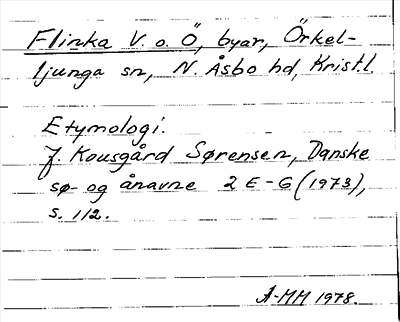 Flinka V. o. Ö, byar, Örkel-
ljunga sn, N. Åsbo hd, Kristl.
Etymologi.
J. Kousgård Sørensen, Danske
sø- og ånavne 2 E-G (1973),
s. 112.
A-MM 1978.